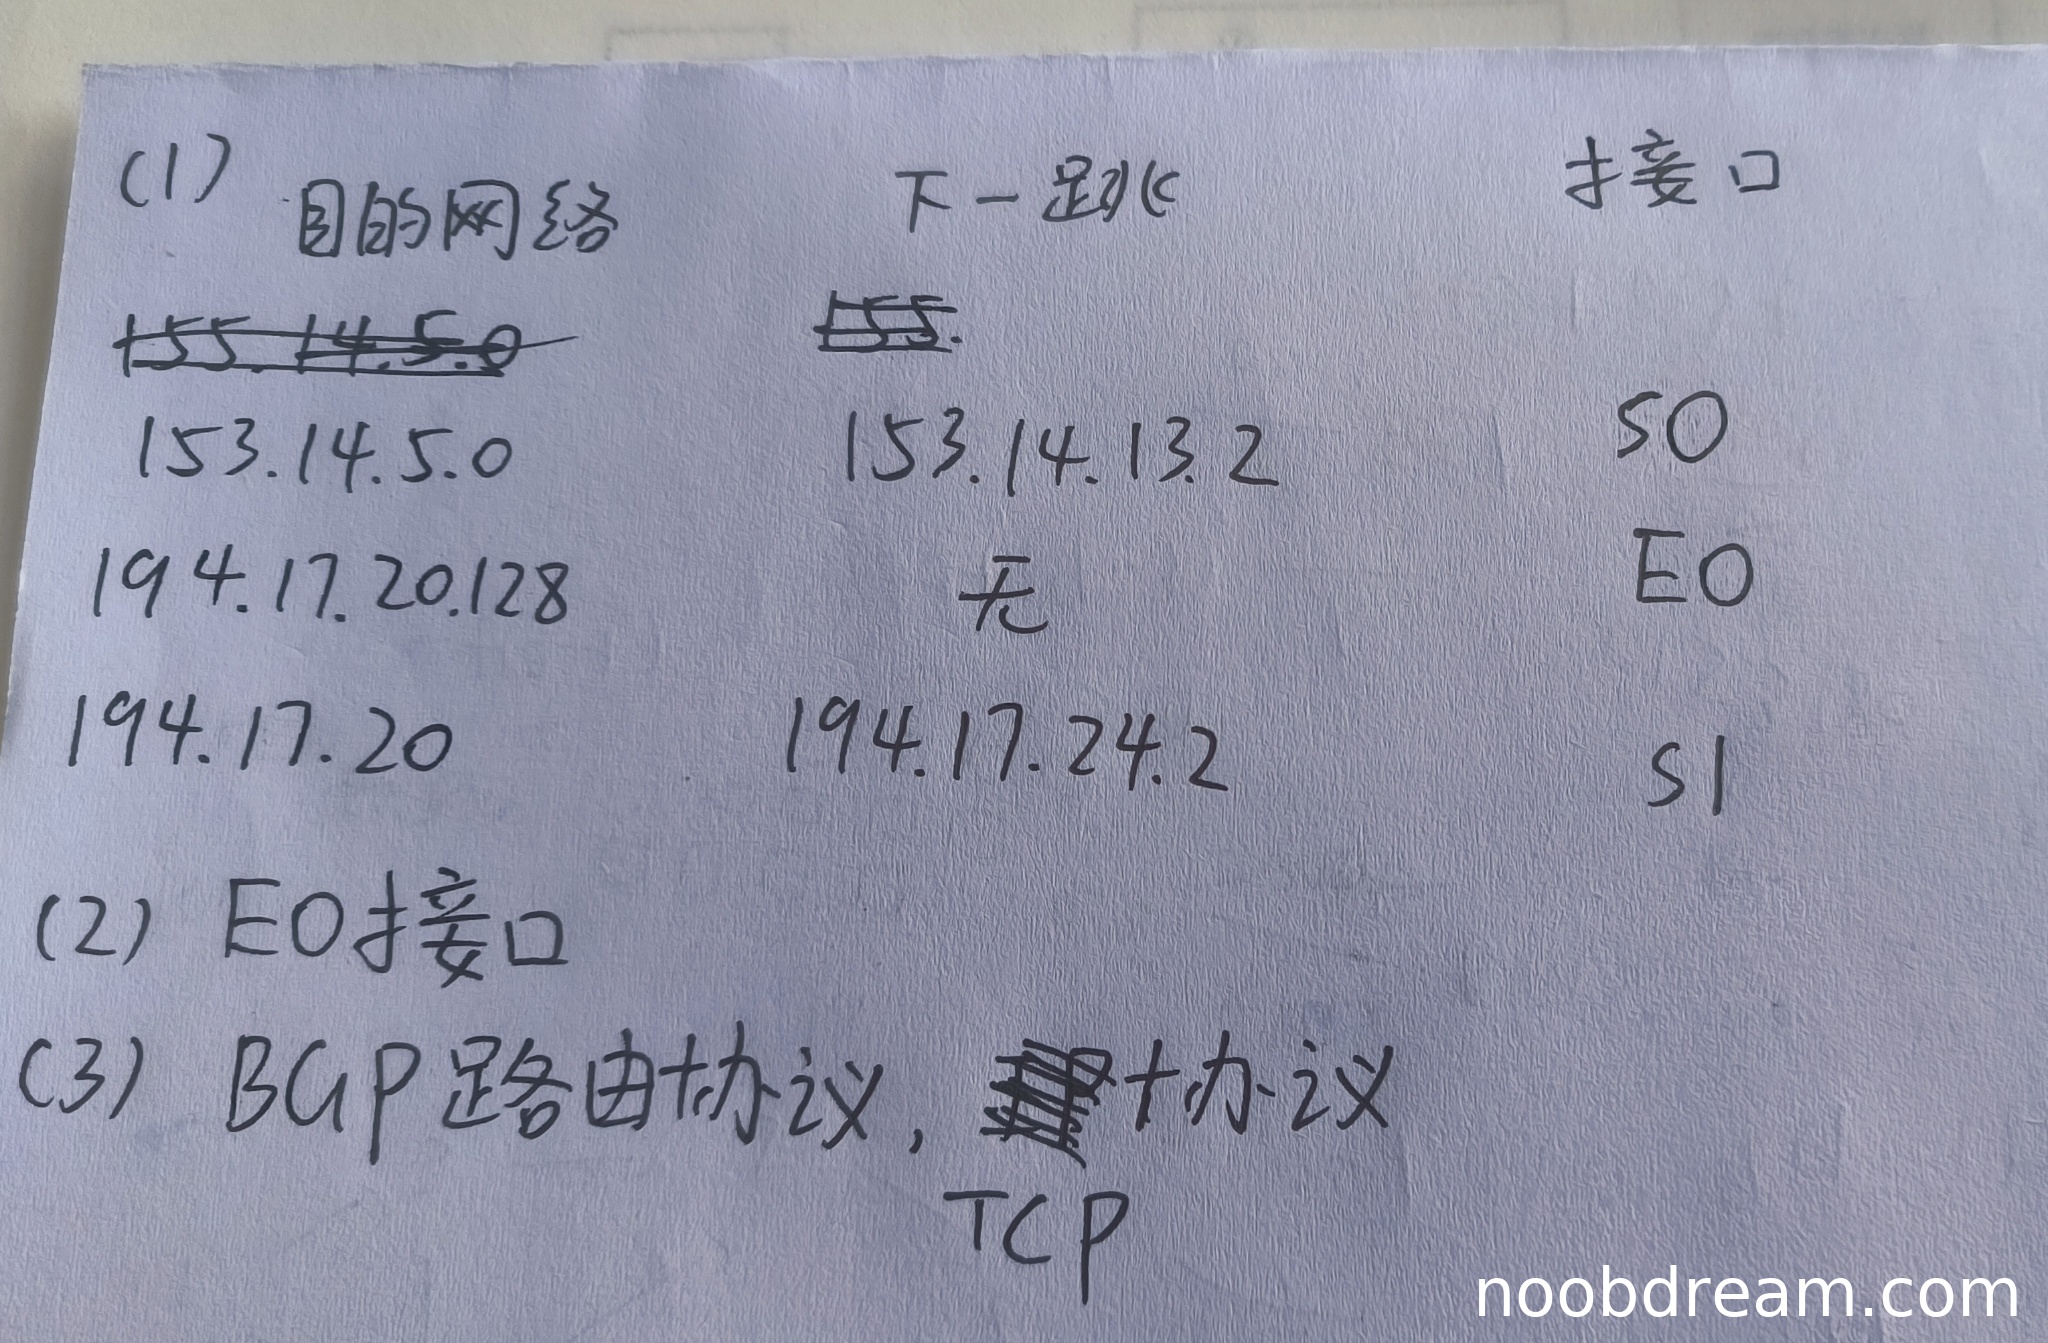 (1) 目的网络 下一跳 接口
155.14.5.0 155.
153.14.5.0 153.14.13.2 S0
194.17.20.128 无 E0
194.17.20 194.17.24.2 S1
(2) E0接口
(3) BGP路由协议, 协议
TCP
noobdream.com